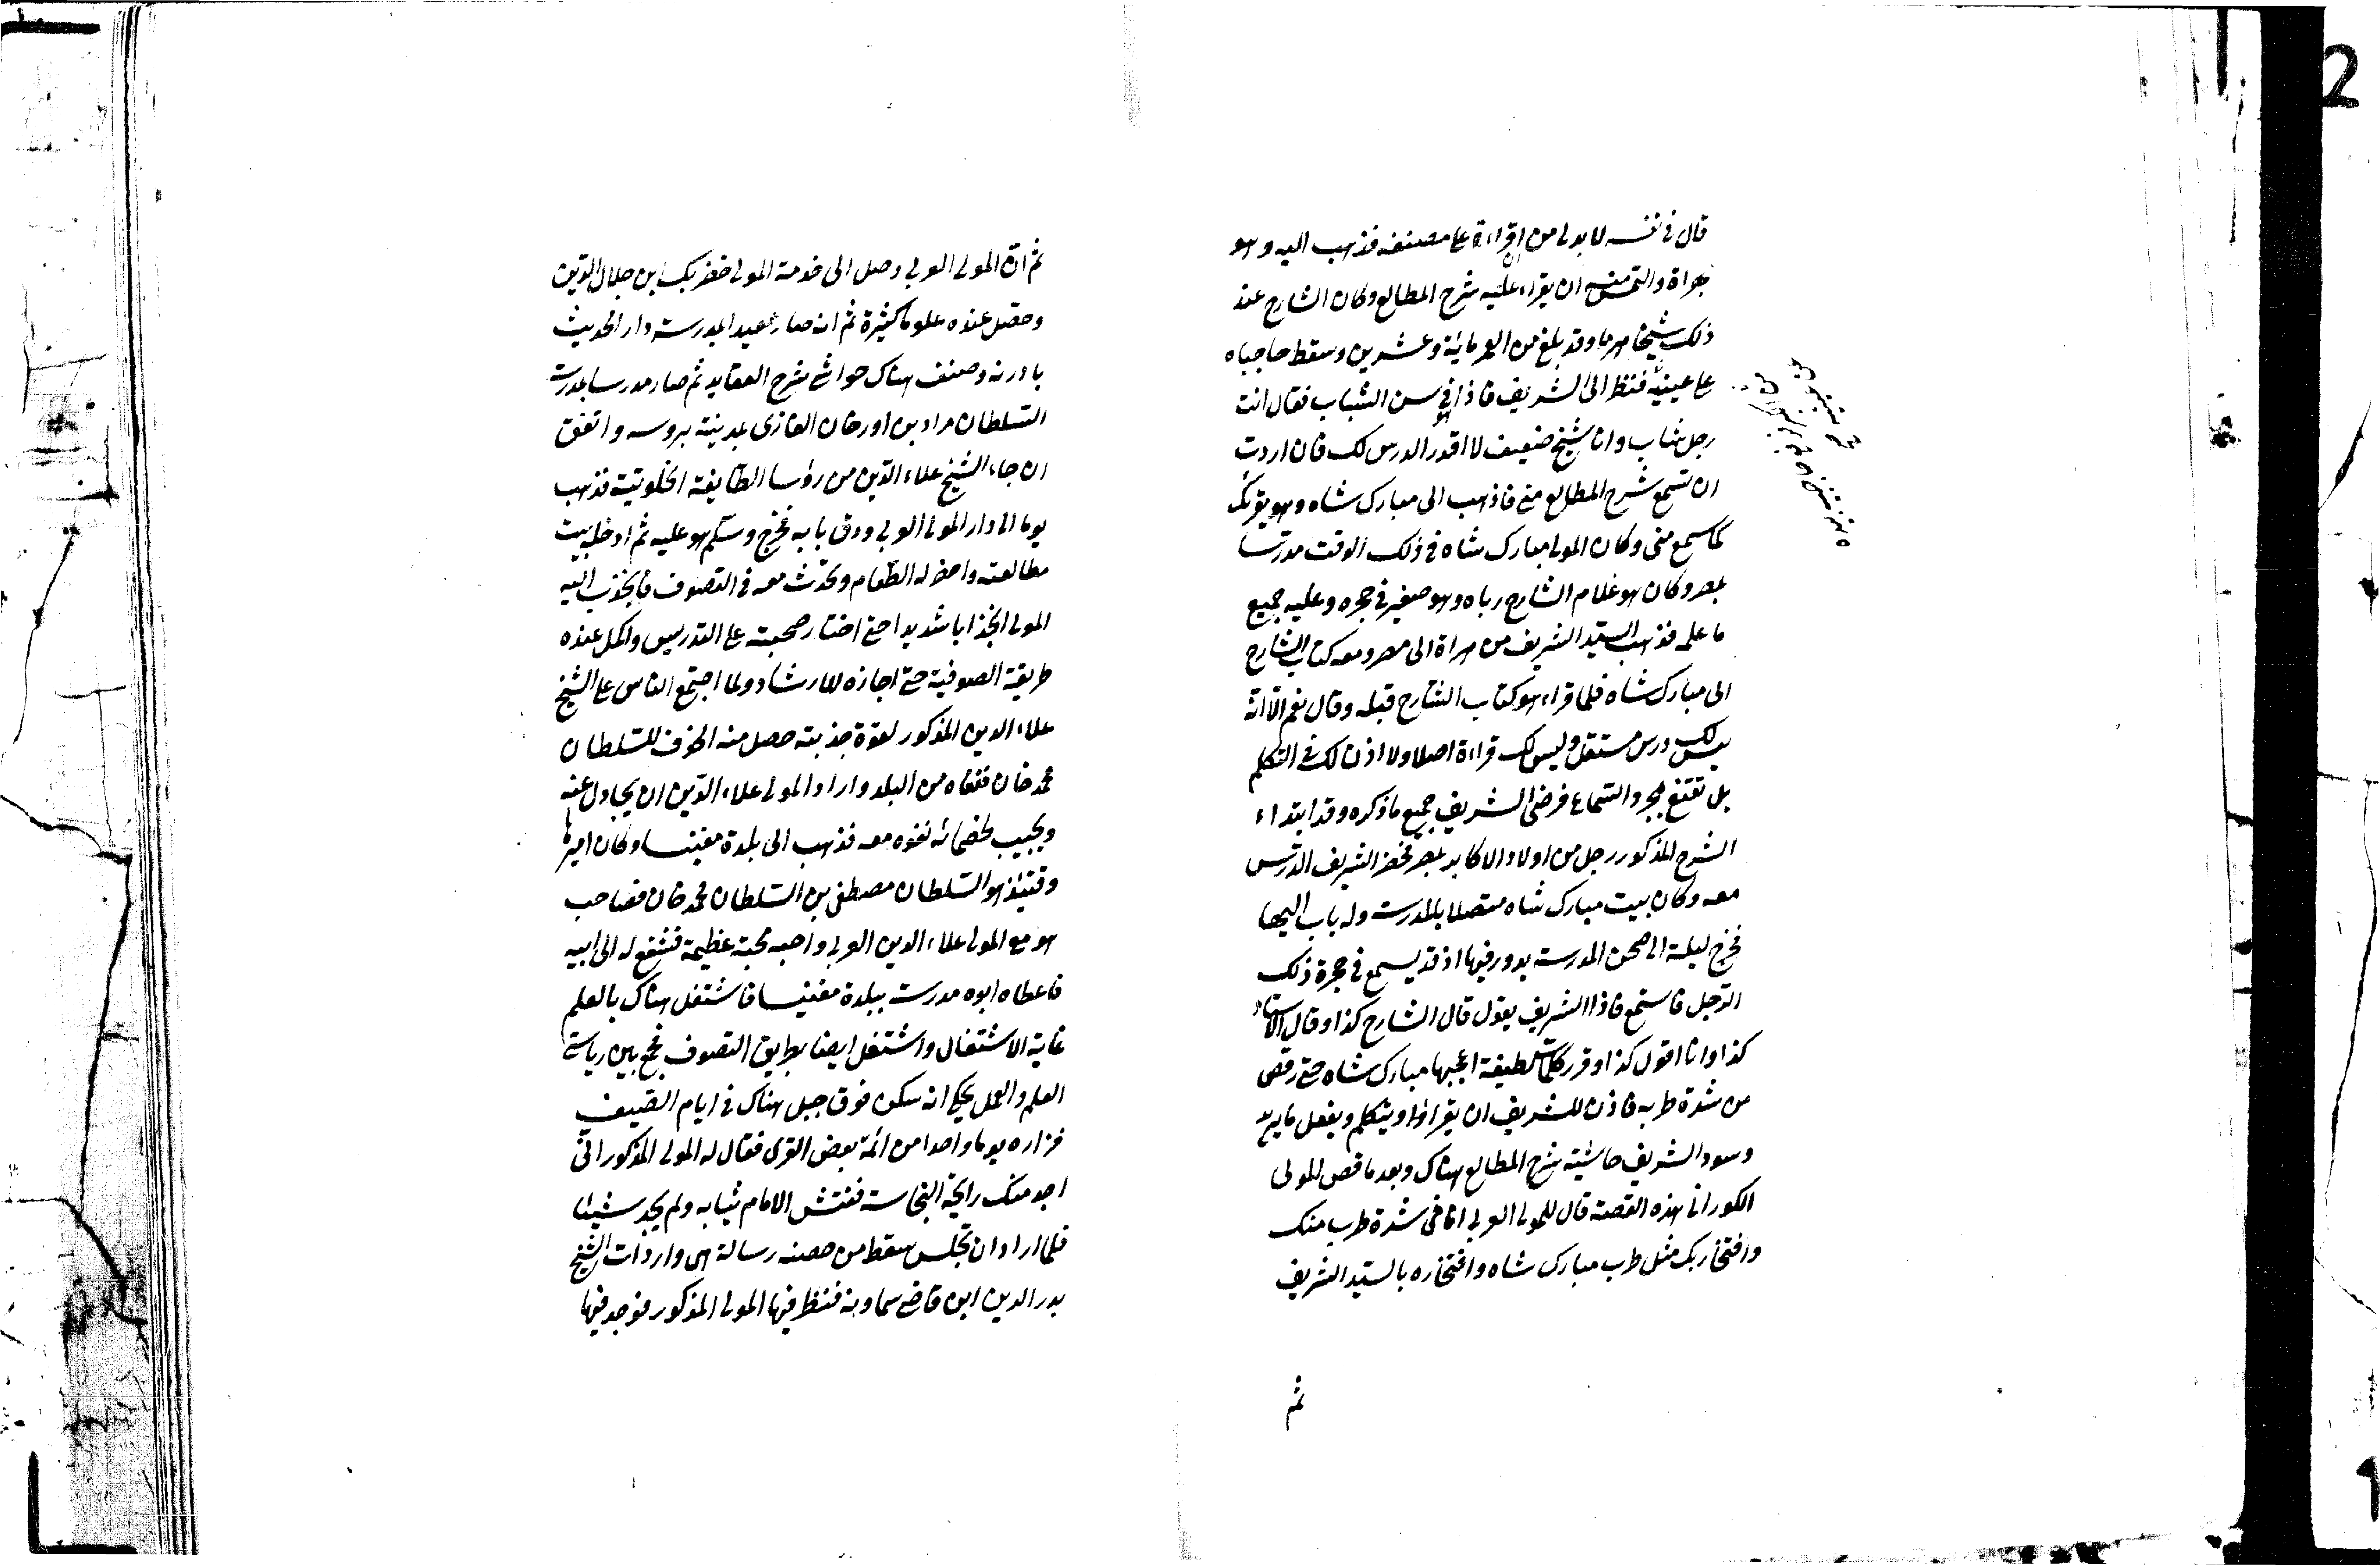 قال في نفسه لا بد لي من اقراءة على مصنفه فذهب اليه وهو
بهراة والتمس منه ان يقراء عليه شرح المطالع وكان الشارح عند
ذلك شيخا هرما وقد بلغ من العمر مائة وعشرين وسقط حاجباه
على عينيه فنظر الى الشريف فاذا هو في سن الشباب فقال انت
رجل شاب وانا شيخ ضعيف لا اقدر الدرس لك فان اردت
ان تسمع شرح المطالع مني فاذهب الى مبارك شاه وهو يقرئك
كما سمع مني وكان المولى مبارك شاه في ذلك الوقت مدرسا
بمصر وكان هو غلام الشارح رباه وهو صغير في حجره وعليه جميع
ما علمه فذهب السيد الشريف من هراة الى مصر ومعه كتاب الشارح
الى مبارك شاه فلما قراء هو كتاب الشارح قبله وقال نعم الا انه
ليس لك درس مستقل وليس لك قراءة اصلا ولا اذن لك في التكلم
بل تقتنع بمجرد السماع فرضى الشريف جميع ما ذكره وقد ابتداء
الشرح المذكور رجل من اولاد الاكابر بمصر فحضر الشريف الدرس
معه وكان بيت مبارك شاه متصلا بالمدرسة وله باب اليها
فخرج ليلة الى صحن المدرسة يدور فيها اذ قد يسمع في حجرة ذلك
الرجل فاستمع فاذا الشريف يقول قال الشارح كذا وقال الاستاد
كذا وانا اقول كذا وقرر كلمات لطيفة اعجبها مبارك شاه حتى رقص
من شدة طربه فاذن للشريف ان يقراء ويتكلم ويفعل ما يريد
وسود الشريف حاشية شرح المطالع هناك وبعد ما قص المولى
الكوراني هذه القصة قال للمولى العربي انا في شدة طرب منك
وافتخار بك مثل طرب مبارك شاه وافتخاره بالسيد الشريف
ثم
ثم ان المولى العربي وصل الى خدمة المولى خضر بك ابن جلال الدين
وحصل عنده علوما كثيرة ثم انه صار معيدا بمدرسة دار الحديث
بادرنه وصنف هناك حواشي شرح العقايد ثم صار مدرسا بمدرسة
السلطان مراد بن اورخان الغازى بمدينة بروسه واتفق
ان جاء الشيخ علاء الدين من رؤسا الطايفة الخلوتية فذهب
يوما الى دار المولى العربي ودق بابه فخرج وسلم هو عليه ثم ادخله بيت
مطالعته واحضر له الطعام وتحدث معه في التصوف فانجذب اليه
المولى انجذابا شديدا حتى اختار صحبته على التدريس واكمل عنده
طريقة الصوفية حتى اجازه للارشاد ولما اجتمع الناس على الشيخ
علاء الدين المذكور لقوة جذبته حصل منه الخوف للسلطان
محمد خان فنفاه من البلد واراد المولى علاء الدين ان يجادل عنه
ويجيب لخصمائه نفوه معه فذهب الى بلدة مغنيسا وكان اميرها
وقتئذ هو السلطان مصطفى بن السلطان محمد خان فصاحب
هو مع المولى علاء الدين العربي واحبه محبة عظيمة فشفع له الى ابيه
فاعطاه ابوه مدرسة ببلدة مغنيسا فاشتغل هناك بالعلم
غاية الاشتغال واشتغل ايضا بطريق التصوف فجمع بين رياستي
العلم والعمل يحكى انه سكن فوق جبل هناك في ايام الصيف
فزاره يوما واحدا من ائمة بعض القرى فقال له المولى المذكور انى
اجد منك رايحة النجاسة ففتش الامام ثيابه ولم يجد شيئا
فلما اراد ان يجلس سقط من حضنه رسالة هى واردات الشيخ
بدر الدين ابن قاضي سماونه فنظر فيها المولى المذكور فوجد فيها